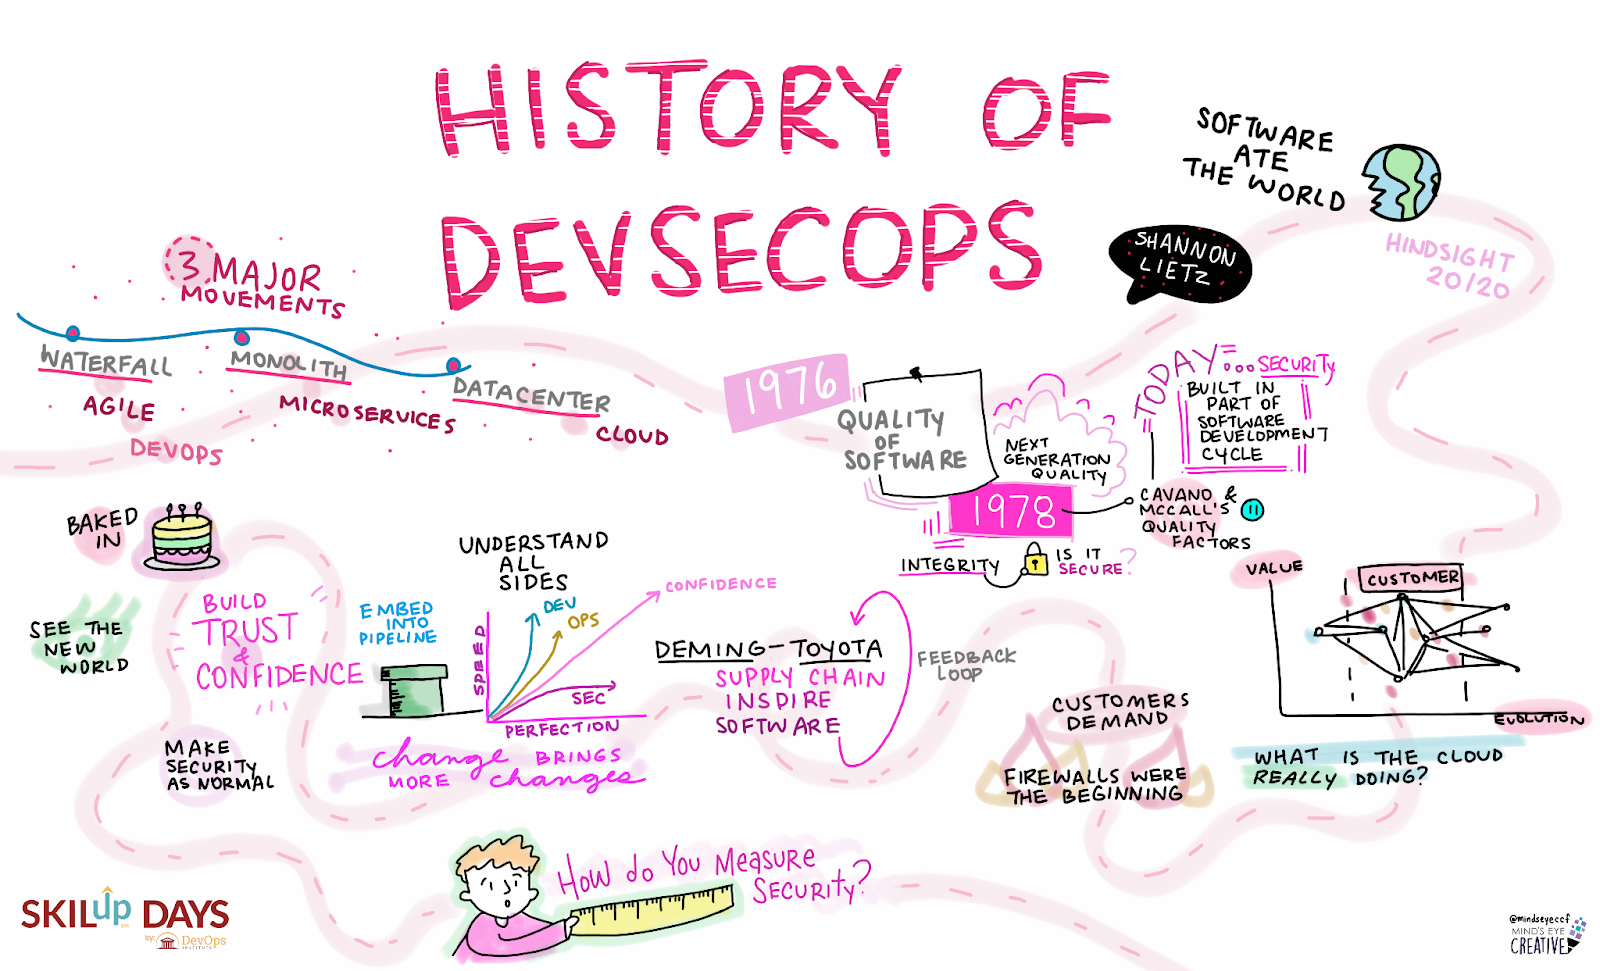 HISTORY OF
DEVSECOPS
SOFTWARE
ATE
THE WORLD
SHANNON
LIETZ
HINDSIGHT
20/20
3 MAJOR
MOVEMENTS
WATERFALL
AGILE
DEVOPS
MONOLITH
MICROSERVICES
DATACENTER
CLOUD
1976
QUALITY
OF
SOFTWARE
NEXT
GENERATION
QUALITY
1978
INTEGRITY
IS IT
SECURE?
CAVANO &
MCCALL'S
QUALITY
FACTORS
11
TODAY
...SECURITY
BUILT IN
PART OF
SOFTWARE
DEVELOPMENT
CYCLE
BAKED
IN
SEE THE
NEW
WORLD
BUILD
TRUST
&
CONFIDENCE
MAKE
SECURITY
AS NORMAL
EMBED
INTO
PIPELINE
UNDERSTAND
ALL
SIDES
SPEED
DEV
OPS
CONFIDENCE
SEC
PERFECTION
change BRINGS
MORE changes
DEMING-TOYOTA
SUPPLY CHAIN
INSPIRE
SOFTWARE
FEEDBACK
LOOP
CUSTOMERS
DEMAND
FIREWALLS WERE
THE BEGINNING
VALUE
CUSTOMER
EVOLUTION
WHAT IS THE CLOUD
REALLY DOING?
HOW do YOU MEASURE
SECURITY?
SKILup DAYS
by: DevOps
INSTITUTE
@mindseyeccf
MIND'S EYE
CREATIVE